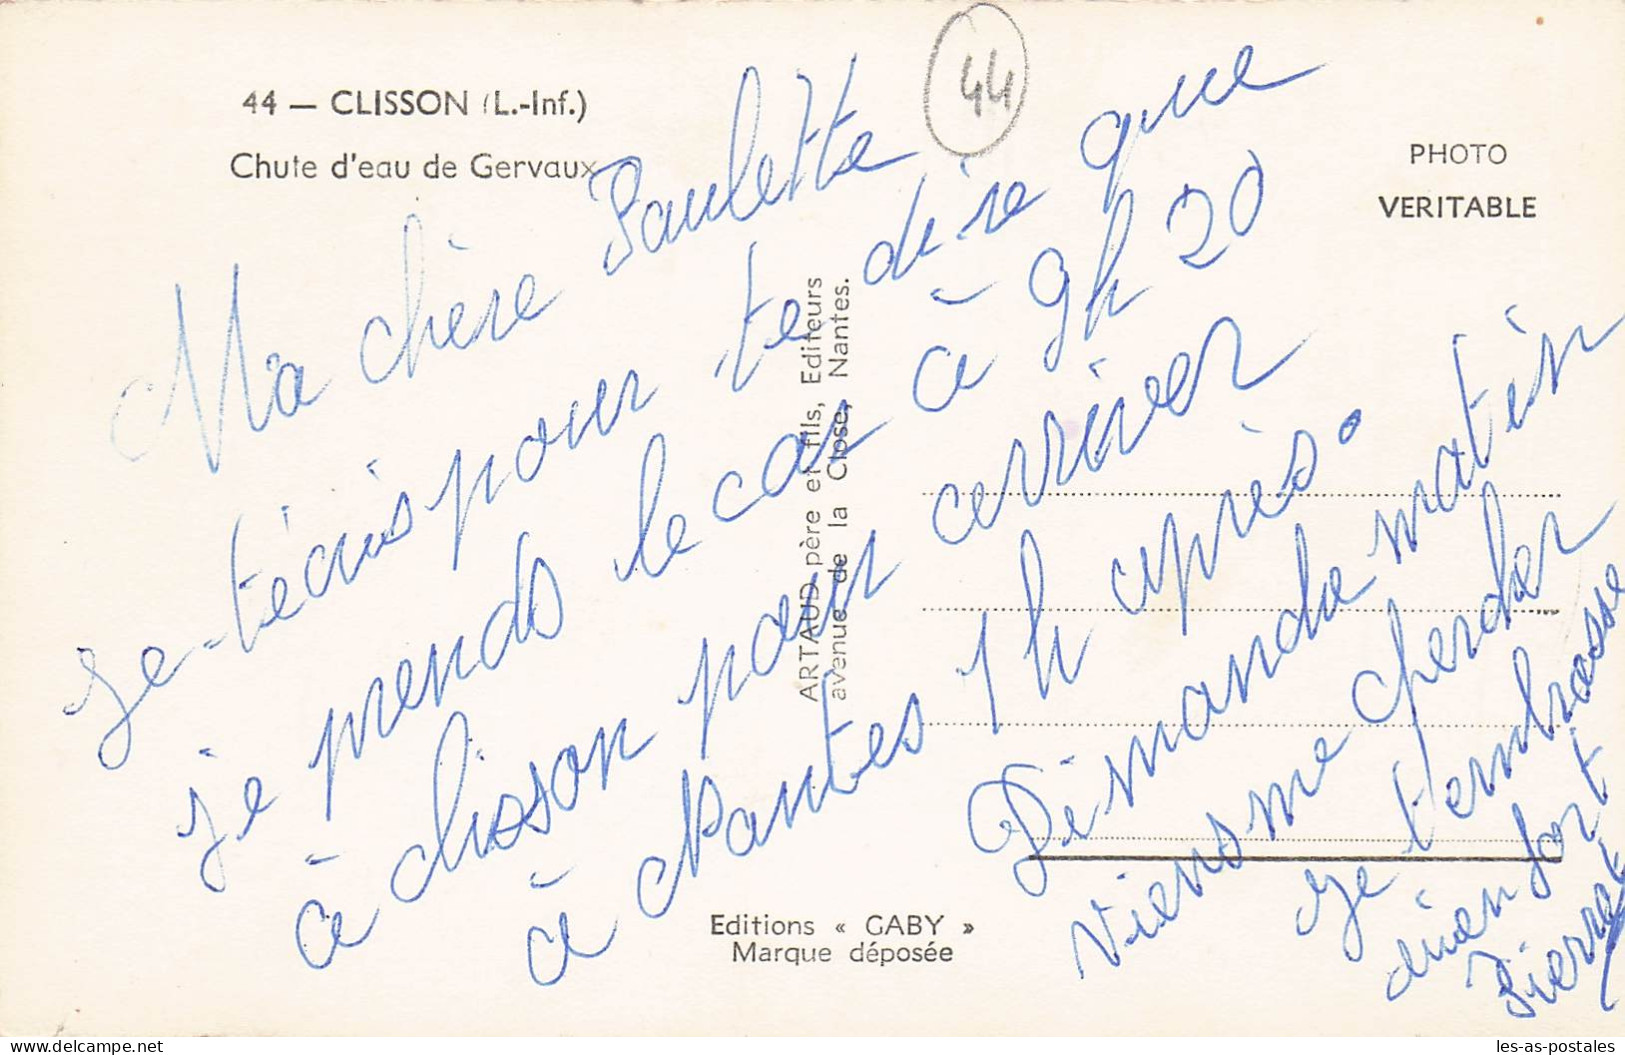 44 — CLISSON (L.-Inf.)
Chute d'eau de Gervaux
44
PHOTO
VERITABLE
Ma chère Paulette
Je-técris pour te dire que
je prends le car à 9h 20
à clisson pour arriver
à Nantes 1h après.
Dimanche matin
viens me chercher
Je t'embrasse
bien fort
Pierret
ARTAUD père et fils, Editeurs
avenue de la Close, Nantes.
Editions « GABY »
Marque déposée
delcampe.net
les-as-postales